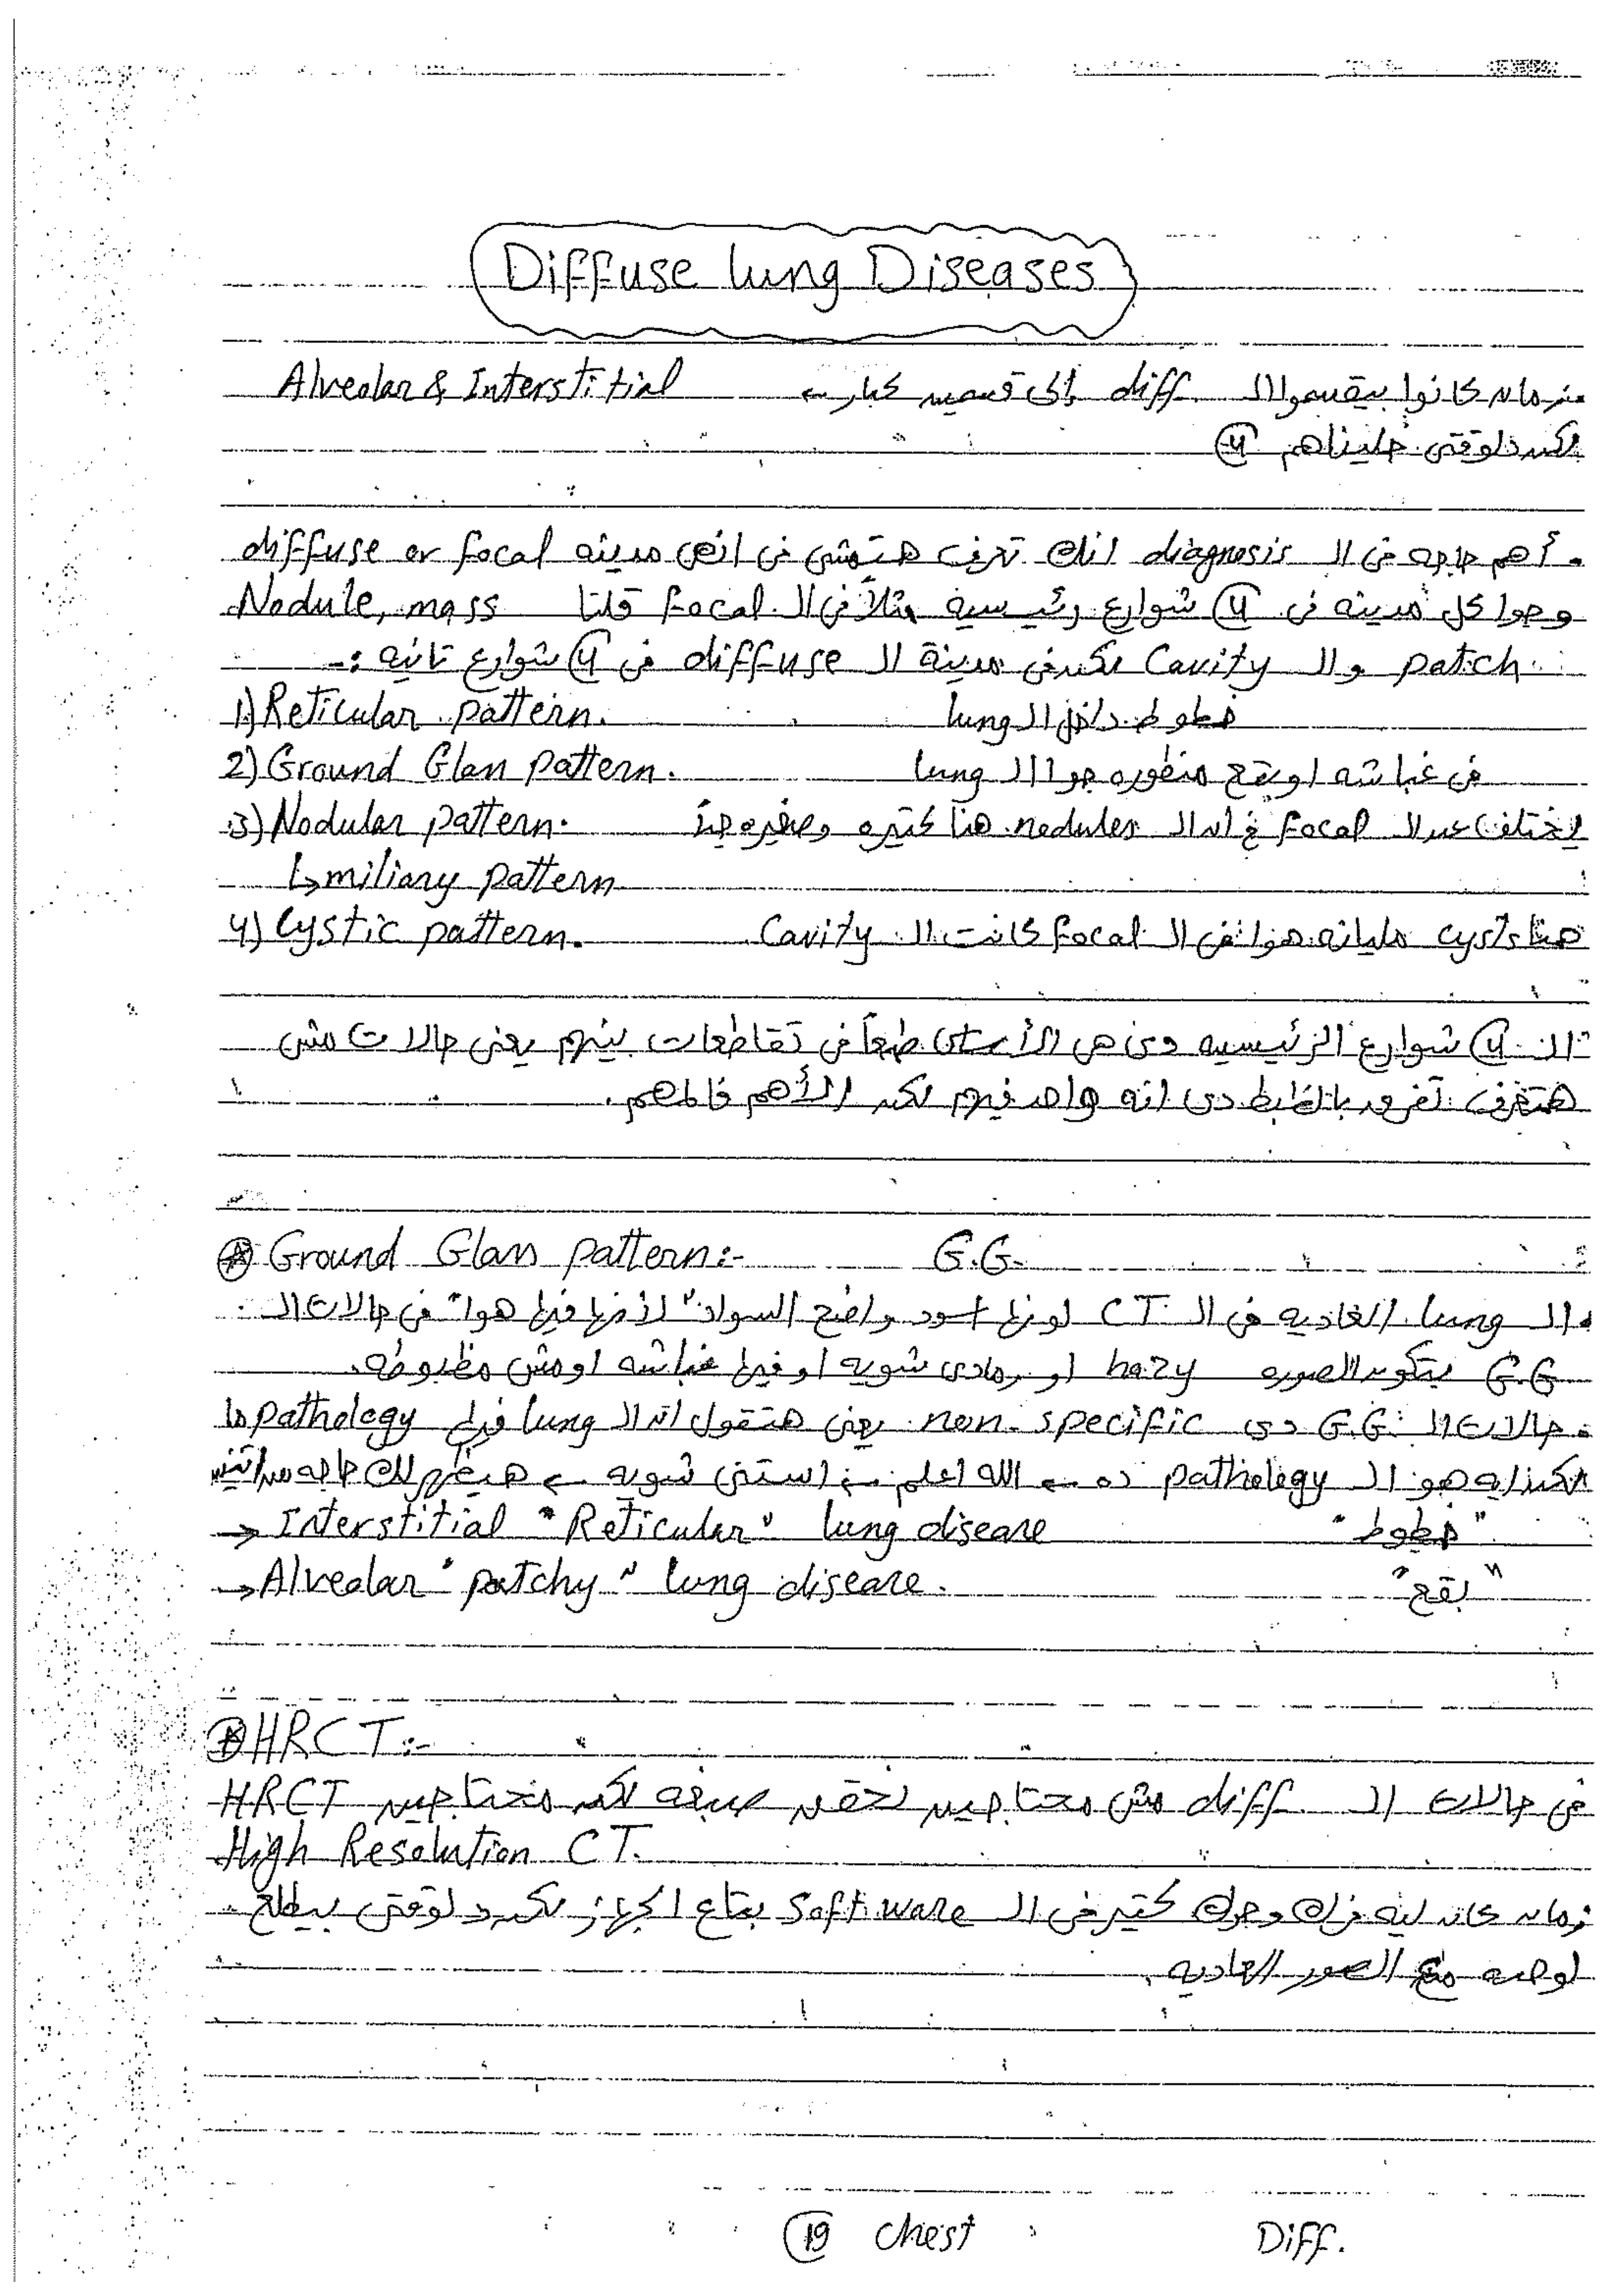 Diffuse lung Diseases
زمان كانوا بيقسموا ال diff. إلى قسمين كبار ← Alveolar & Interstitial
لكن دلوقتى خليناهم ④
. أهم حاجه فى ال diagnosis انك تعرف هتمشى فى انهى مدينه diffuse or focal
وجوا كل مدينه فى ④ شوارع رئيسيه مثلاً فى ال focal قلنا Nodule, mass
patch وال Cavity لكن فى مدينة ال diffuse فى ④ شوارع تانيه :-
1) Reticular pattern. خطوط داخل ال lung
2) Ground Glass pattern. فى غباشه او بقع منطوره جوا ال lung
3) Nodular pattern. يختلف عن ال focal فى ان ال nodules هنا كتيره وصغيره جداً
↳ miliary pattern
4) Cystic pattern. هنا cysts مليانه هوا فى ال focal كانت ال Cavity
ال ④ شوارع الرئيسيه دى هى الأساس طبعاً فى تقاطعات بينهم يعنى حالات مش
هتعرف تفرق بالظبط دى انه واحد فيهم لكن الأهم فالمهم.
⊛ Ground Glass pattern:- G.G.
. ال lung العاديه فى ال CT لونها اسود واضح السواد "لأنها فيها هوا" فى حالات ال
G.G بتكون الصوره hazy او رمادى شويه او فيها غباشه او مش مظبوطه.
. حالات ال G.G. دى non-specific يعنى هتقول ان ال lung فيها pathology ما
لكن ايه هو ال pathology ده ← الله اعلم ← استنى شويه ← هيظهر لك حاجه من اتنين
→ Interstitial "Reticular" lung disease "خطوط"
→ Alveolar "patchy" lung disease. "بقع"
⊛ HRCT:-
فى حالات ال diff. مش محتاجين نحقن صبغه لكن محتاجين HRCT
High Resolution CT.
زمان كان ليه فرك وحرك كتير فى ال Software بتاع الجهاز لكن دلوقتى بيطلع
لوحده مع الصور العاديه.
⑲ chest Diff.